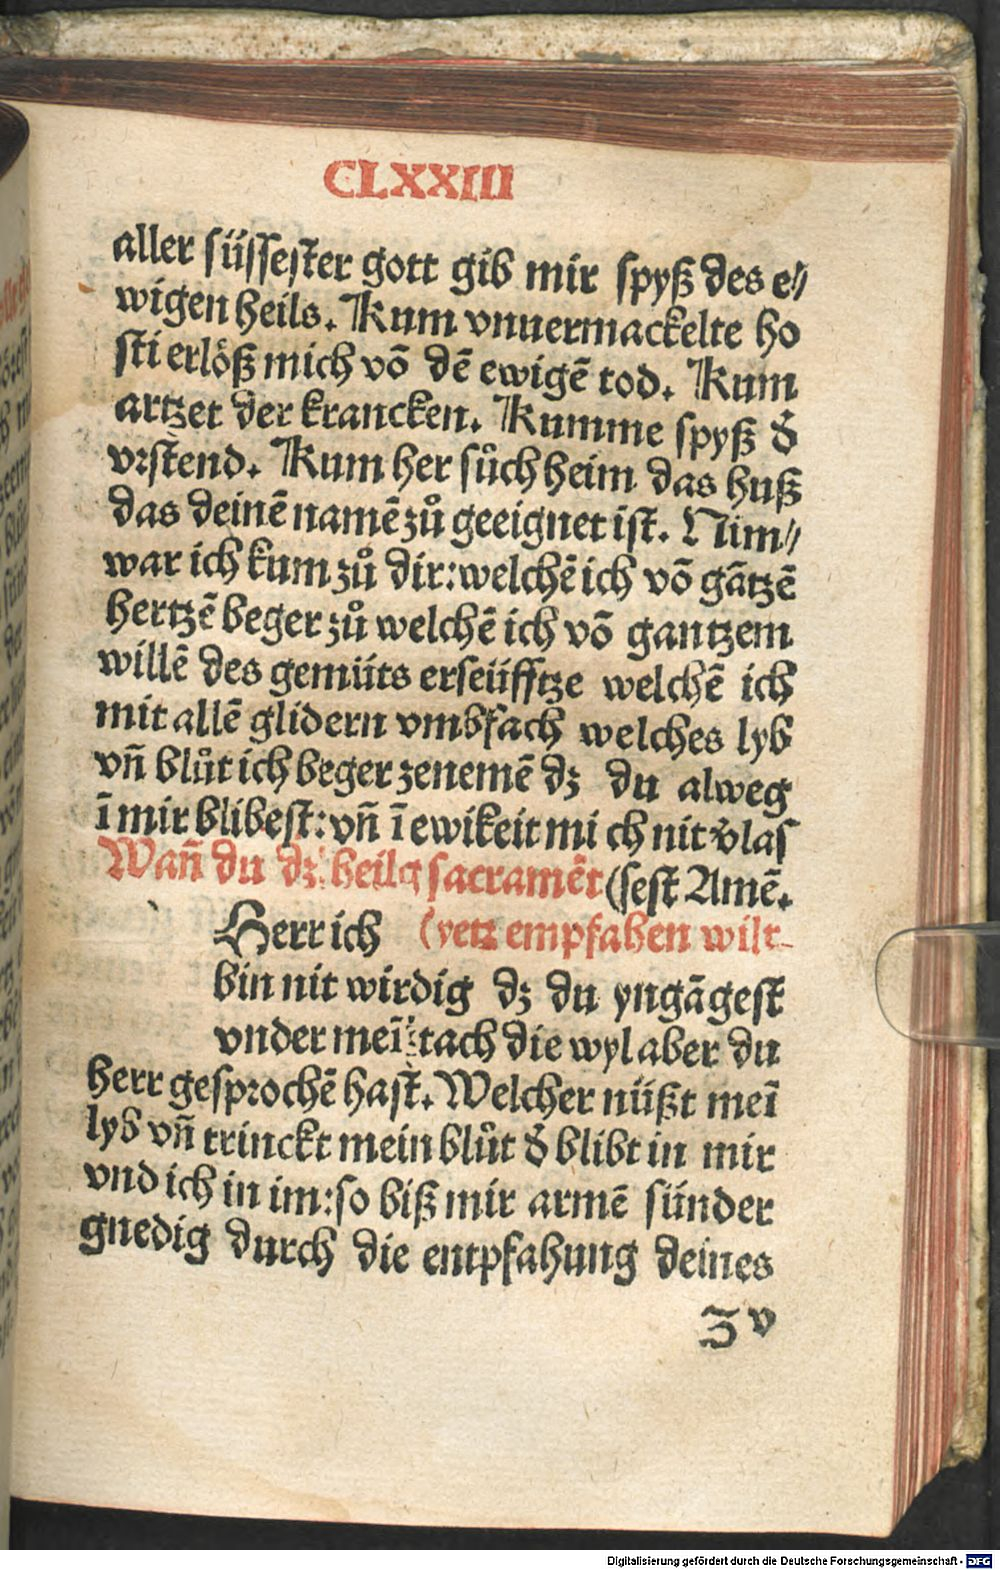 CLXXIII
aller süssester gott gib mir spyß des e⸗
wigen heils. Kum vnuermackelte ho
sti erlöß mich vō dē ewigē tod. Kum
artzet der krancken. Kumme spyß d̕
vrstend. Kum her sůch heim das huß
das deinē namē zů geeignet ist. Nim⸗
war ich kum zů dir: welchē ich vō gātzē
hertzē beger zů welchē ich vō gantzem
willē des gemüts erseüfftze welchē ich
mit allē glidern vmbfach welches lyb
vn̄ blůt ich beger zenemē dz du alweg
ī mir blibest: vn̄ ī ewikeit mi ch nit v̕las
Wan̄ du dz heilg sacramēt (sest Amē.
Herr ich (yetz empfahen wilt
bin nit wirdig dz du yngāgest
vnder meī tach die wyl aber du
herr gesprochē hast. Welcher nüßt meī
lyb vn̄ trinckt mein blůt d̕ blibt in mir
vnd ich in im: so biß mir armē sünder
gnedig durch die entpfahung deines
Z v
Digitalisierung gefördert durch die Deutsche Forschungsgemeinschaft - DFG